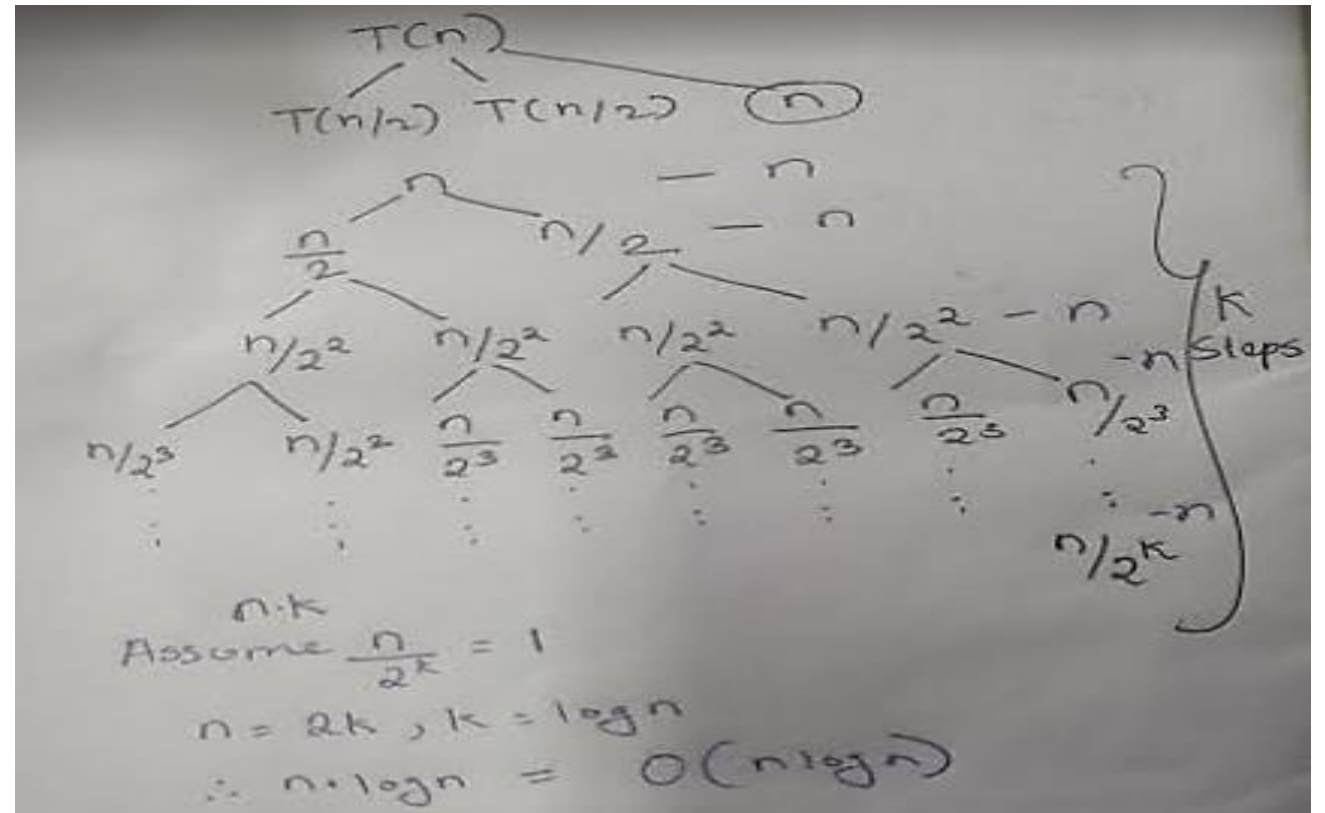 T(n)
T(n/2) T(n/2) n
n - n
n/2 n/2 - n
n/2² n/2² n/2² n/2² - n
K
- n Steps
n/2³ n/2² n/2³ n/2³ n/2³ n/2³ n/2³ n/2³
⋮ ⋮ ⋮ ⋮ ⋮ ⋮ ⋮ ⋮
n/2ᵏ - n
n.k
Assume n/2ᵏ = 1
n = 2k, k = logn
∴ n.logn = O(nlogn)